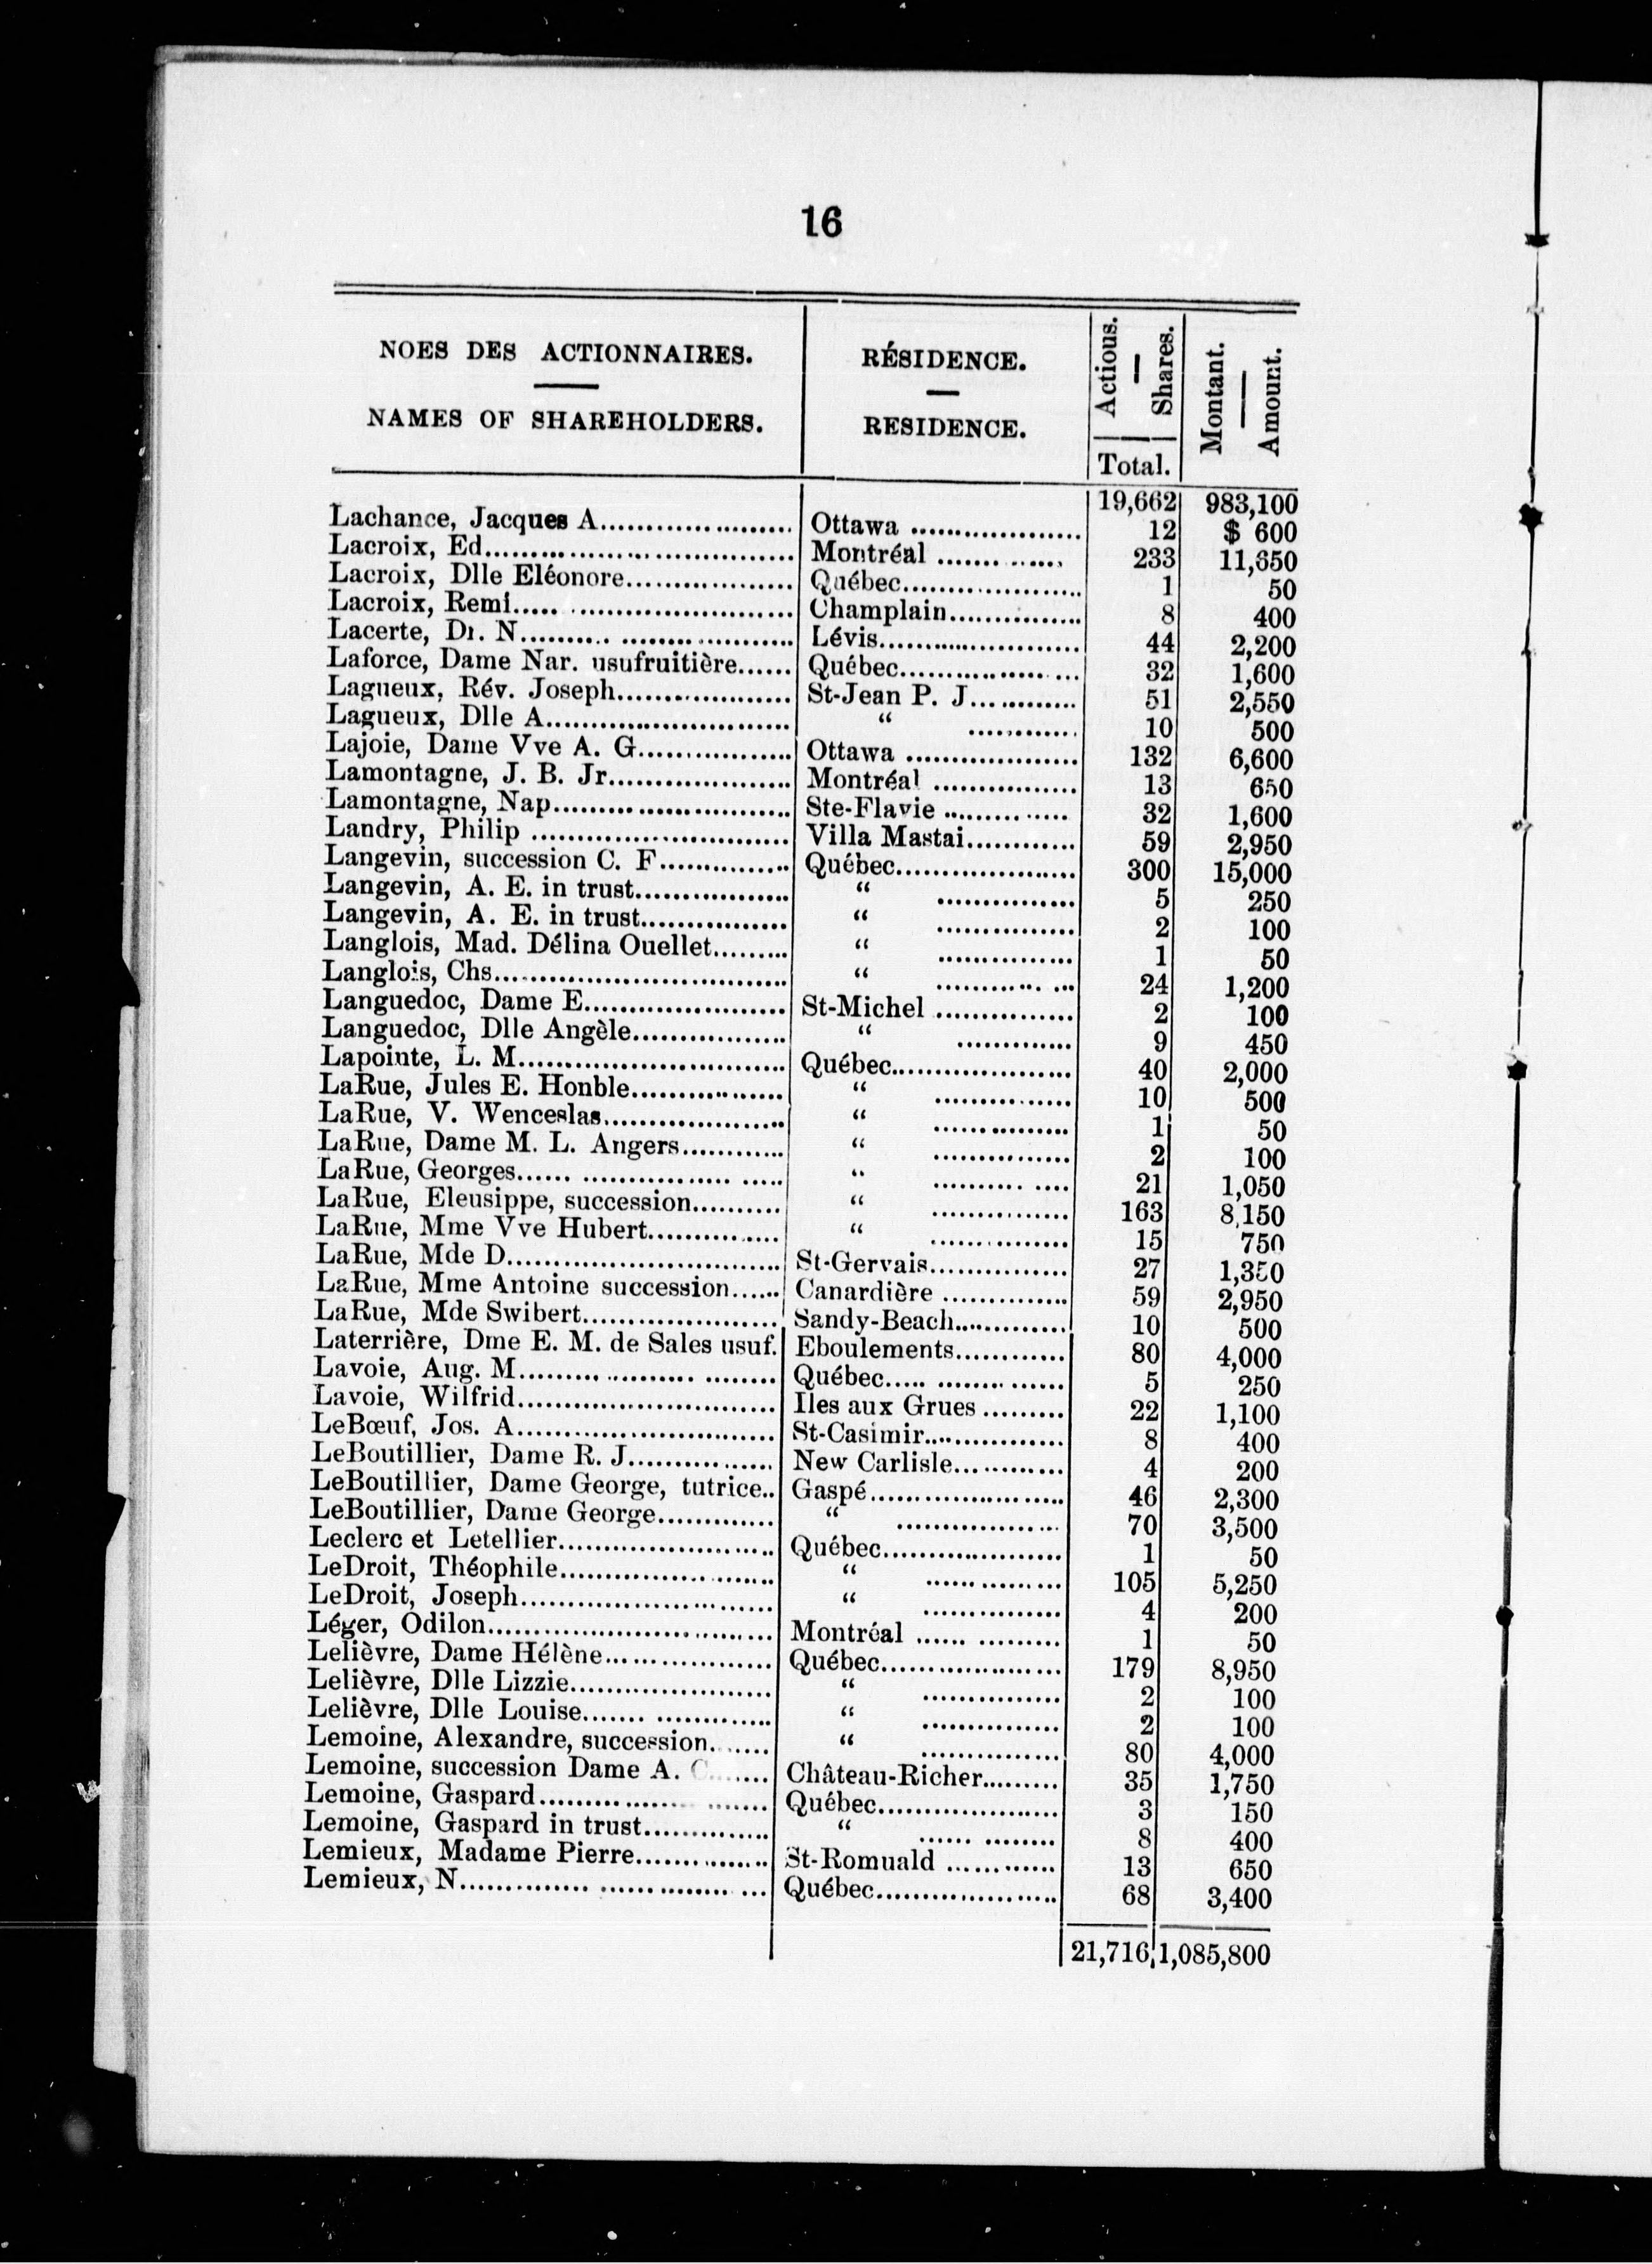 16
NOES DES ACTIONNAIRES.
NAMES OF SHAREHOLDERS.
RÉSIDENCE.
RESIDENCE.
Actious.
Shares.
Total.
Montant.
Amount.
19,662 983,100
Lachance, Jacques A..................... Ottawa ................... 12 $ 600
Lacroix, Ed.................................. Montréal .............. 233 11,650
Lacroix, Dlle Eléonore.................. Québec.................... 1 50
Lacroix, Remi.............................. Champlain............... 8 400
Lacerte, Dr. N.............................. Lévis....................... 44 2,200
Laforce, Dame Nar. usufruitière...... Québec.................... 32 1,600
Lagueux, Rév. Joseph................... St-Jean P. J............ 51 2,550
Lagueux, Dlle A........................... “ ............ 10 500
Lajoie, Dame Vve A. G................. Ottawa ................... 132 6,600
Lamontagne, J. B. Jr.................... Montréal ................ 13 650
Lamontagne, Nap.......................... Ste-Flavie .............. 32 1,600
Landry, Philip ............................. Villa Mastai............ 59 2,950
Langevin, succession C. F.............. Québec.................... 300 15,000
Langevin, A. E. in trust................. “ ............... 5 250
Langevin, A. E. in trust................ “ ............... 2 100
Langlois, Mad. Délina Ouellet......... “ ............... 1 50
Langlois, Chs................................ “ ............... 24 1,200
Languedoc, Dame E...................... St-Michel ............... 2 100
Languedoc, Dlle Angèle................. “ ............. 9 450
Lapointe, L. M............................. Québec.................... 40 2,000
LaRue, Jules E. Honble................. “ ............... 10 500
LaRue, V. Wenceslas.................... “ ............... 1 50
LaRue, Dame M. L. Angers............ “ ............... 2 100
LaRue, Georges............................. “ ............... 21 1,050
LaRue, Eleusippe, succession.......... “ ............... 163 8,150
LaRue, Mme Vve Hubert............... “ ............... 15 750
LaRue, Mde D.............................. St-Gervais............... 27 1,350
LaRue, Mme Antoine succession...... Canardière .............. 59 2,950
LaRue, Mde Swibert...................... Sandy-Beach............ 10 500
Laterrière, Dme E. M. de Sales usuf. Eboulements............ 80 4,000
Lavoie, Aug. M............................ Québec.................... 5 250
Lavoie, Wilfrid............................. Iles aux Grues ......... 22 1,100
LeBœuf, Jos. A............................. St-Casimir............... 8 400
LeBoutillier, Dame R. J................ New Carlisle............ 4 200
LeBoutillier, Dame George, tutrice.. Gaspé..................... 46 2,300
LeBoutillier, Dame George............. “ .................. 70 3,500
Leclerc et Letellier........................ Québec.................... 1 50
LeDroit, Théophile........................ “ ............... 105 5,250
LeDroit, Joseph............................ “ ............... 4 200
Léger, Odilon................................ Montréal ............... 1 50
Lelièvre, Dame Hélène................... Québec.................... 179 8,950
Lelièvre, Dlle Lizzie...................... “ ............... 2 100
Lelièvre, Dlle Louise..................... “ ............... 2 100
Lemoine, Alexandre, succession....... “ ............... 80 4,000
Lemoine, succession Dame A. C....... Château-Richer......... 35 1,750
Lemoine, Gaspard......................... Québec.................... 3 150
Lemoine, Gaspard in trust.............. “ ............... 8 400
Lemieux, Madame Pierre............... St-Romuald ............ 13 650
Lemieux, N.................................. Québec.................... 68 3,400
21,716 1,085,800